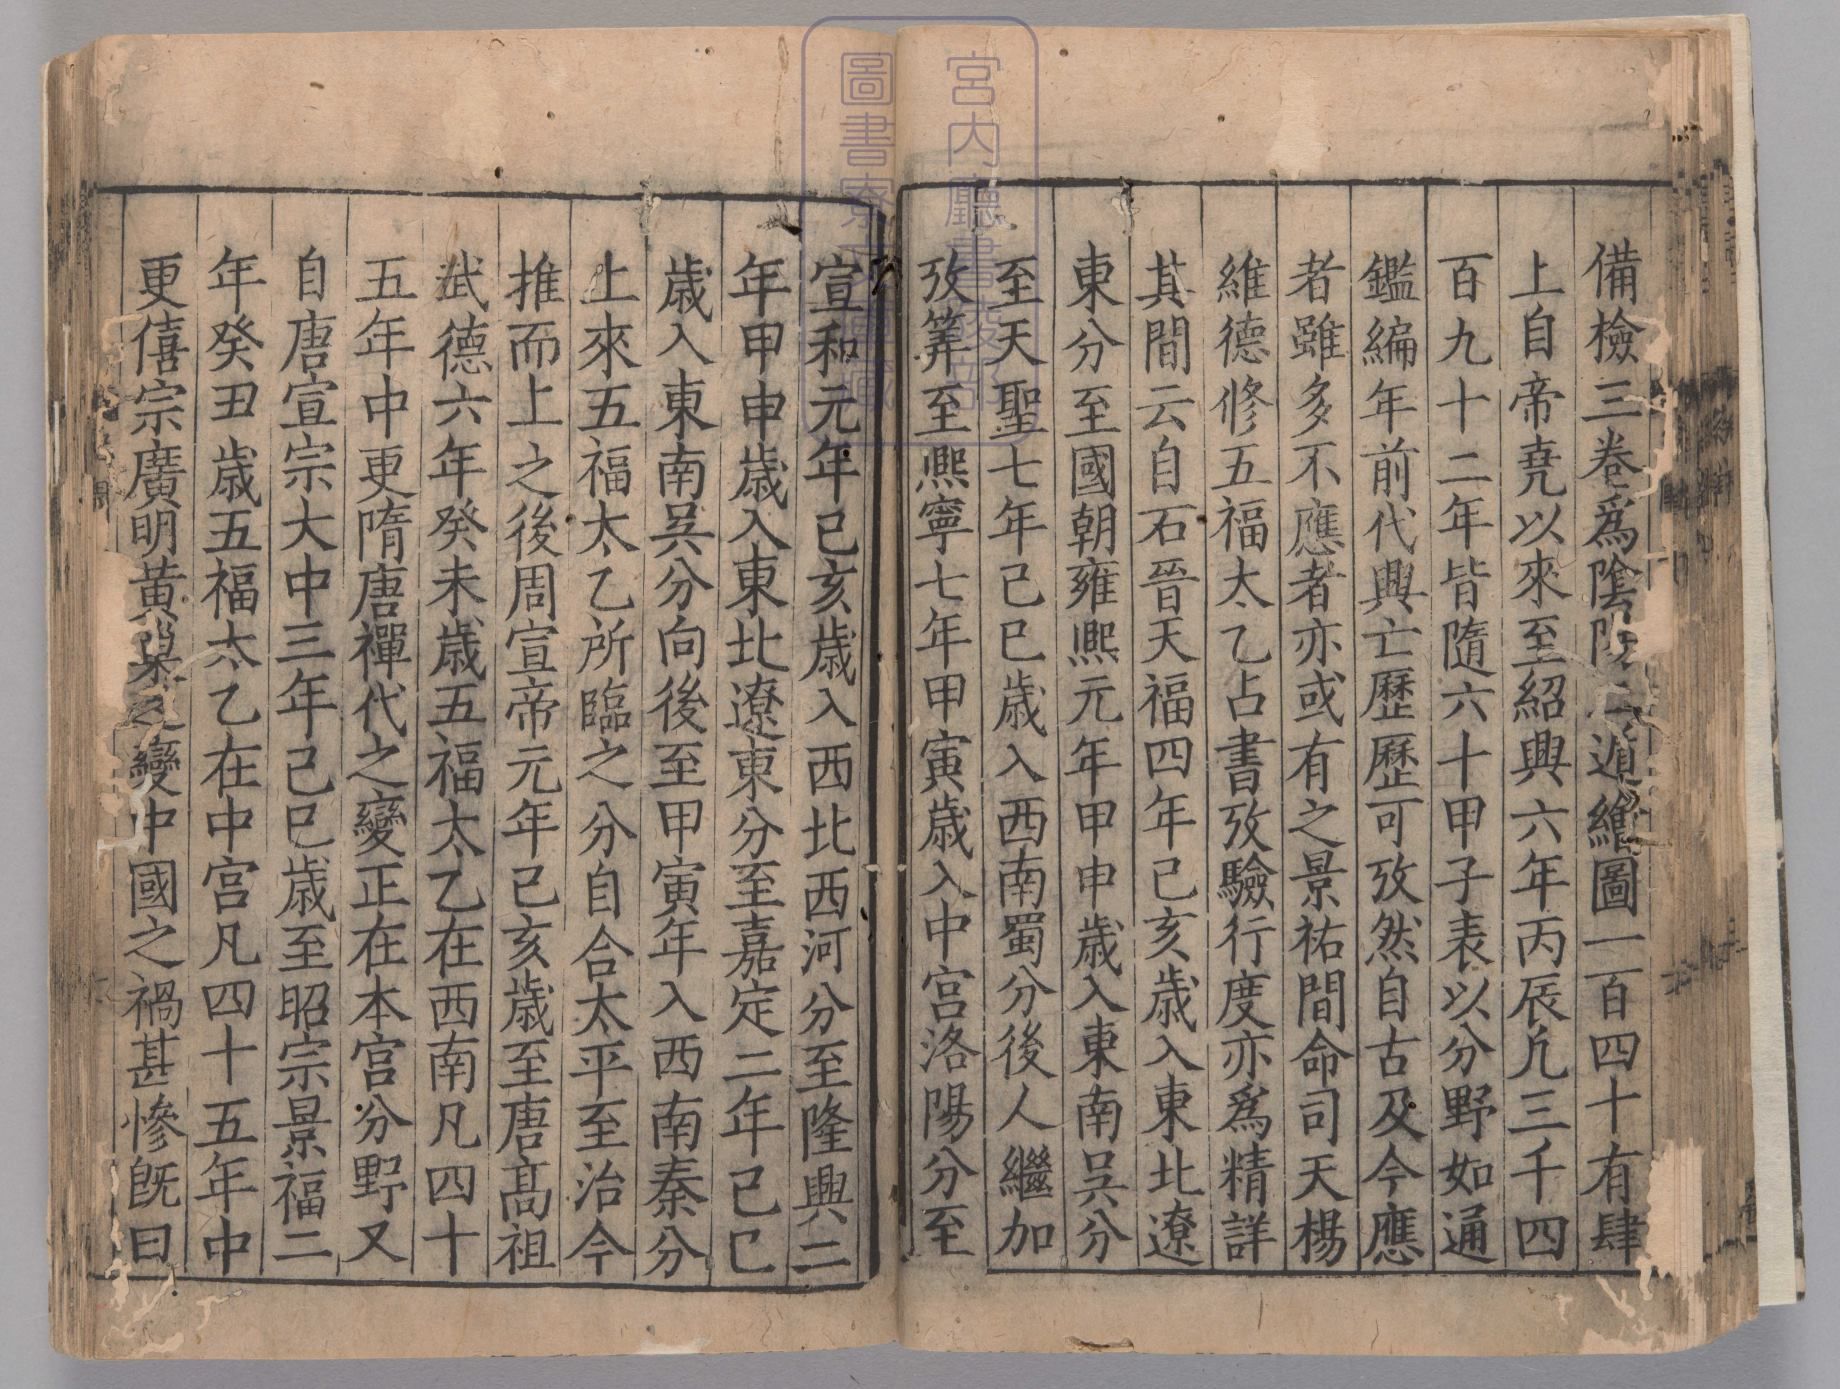 備檢三卷爲陰陽二遁繼圖一百四十有肆
上自帝堯以來至紹興六年丙辰凢三千四
百九十二年皆隨六十甲子表以分野如通
鑑編年前代興亡歷歷可攷然自古及今應
者雖多不應者亦或有之景祐間命司天楊
維德修五福太乙占書攷驗行度亦爲精詳
其間云自石晉天福四年己亥歲入東北遼
東分至國朝雍熙元年甲申歲入東南吳分
至天聖七年己巳歲入西南蜀分後人繼加
攷筭至熙寧七年甲寅歲入中宮洛陽分至
宣和元年己亥歲入西北西河分至隆興二
年甲申歲入東北遼東分至嘉定二年己巳
歲入東南吳分向後至甲寅年入西南秦分
上來五福太乙所臨之分自合太平至治今
推而上之後周宣帝元年己亥歲至唐髙祖
武德六年癸未歲五福太乙在西南凡四十
五年中更隋唐禪代之變正在本宮分野又
自唐宣宗大中三年己巳歲至昭宗景福二
年癸丑歲五福太乙在中宮凡四十五年中
更僖宗廣明黃巢之變中國之禍甚慘旣曰
宮內廳書陵部
圖書寮文庫藏